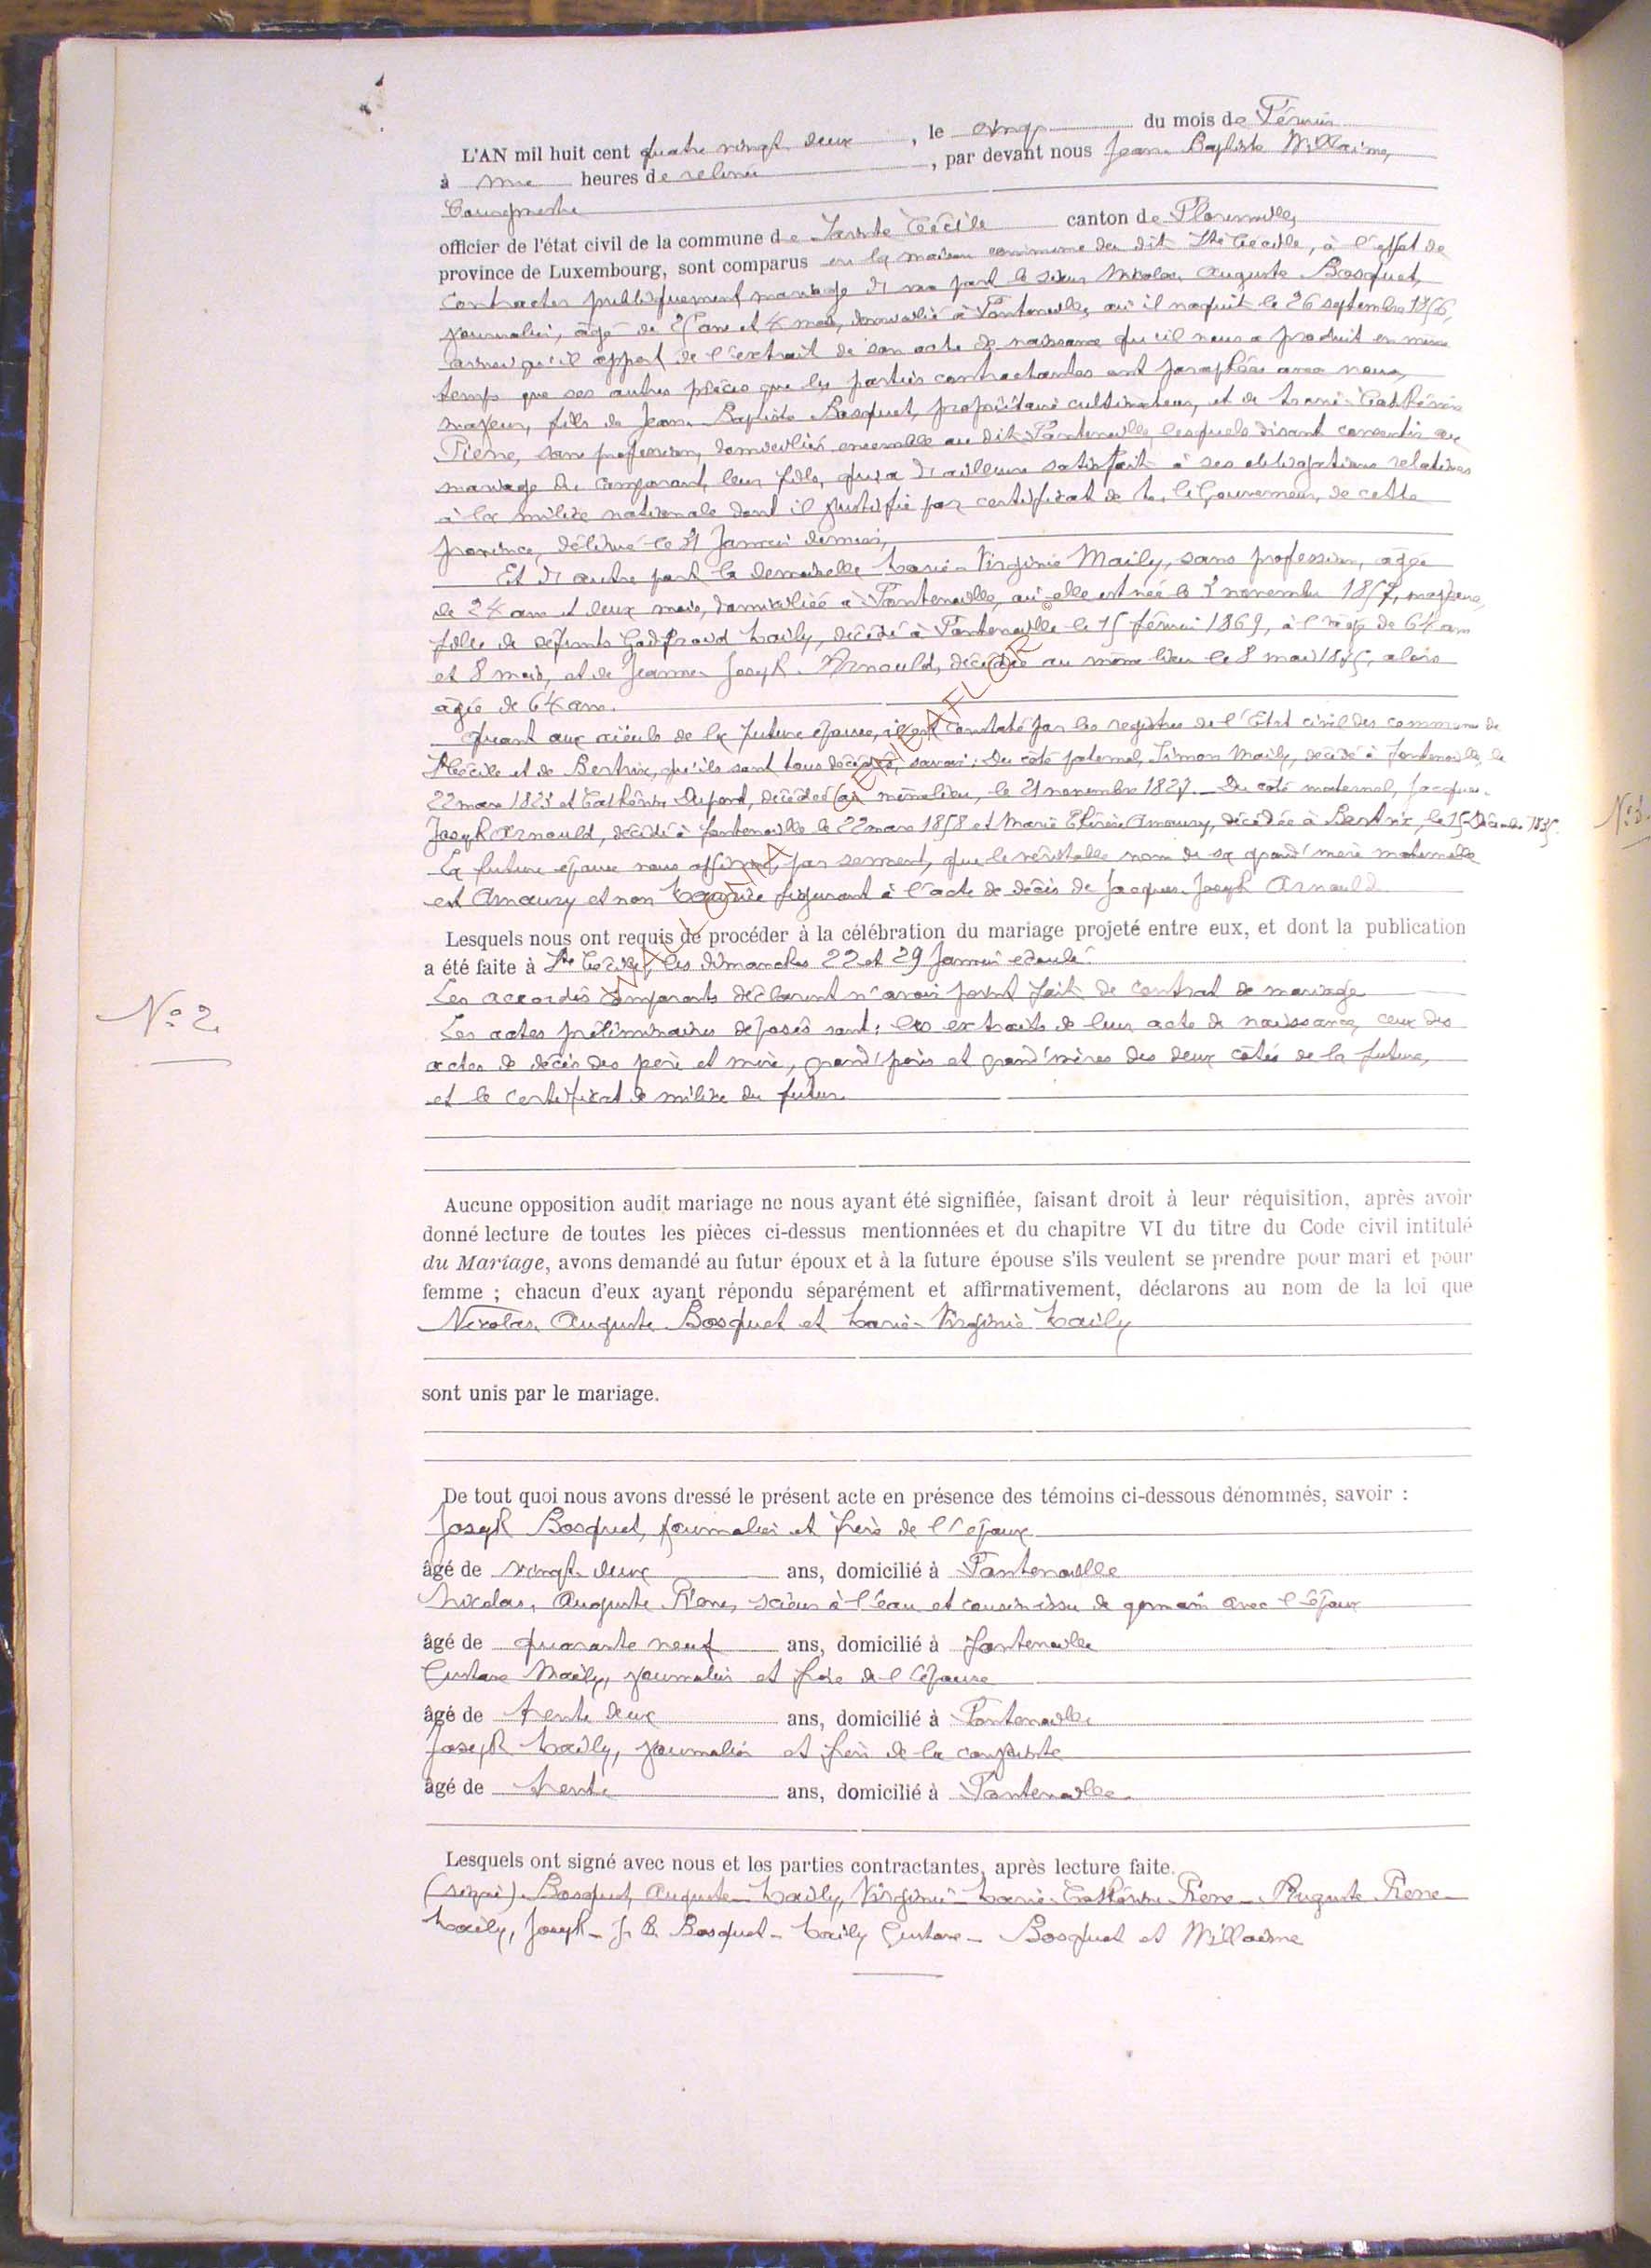 L'AN mil huit cent quatre vingt deux, le cinq du mois de Février
à une heures de relevée, par devant nous Jean-Baptiste Millaime,
Bourgmestre
officier de l'état civil de la commune de Sainte Cécile canton de Florenville,
province de Luxembourg, sont comparus en la maison commune du dit Ste Cécile, à l'effet de
contracter publiquement mariage d'une part le sieur Nicolas Auguste Bosquet,
journalier, âgé de 25 ans et 4 mois, domicilié à Fontenoille, où il naquit le 26 septembre 1856,
ainsi qu'il appert de l'extrait de son acte de naissance qu'il nous a produit en même
temps que ses autres pièces que les parties contractantes ont paraphées avec nous,
majeur, fils de Jean-Baptiste Bosquet, propriétaire cultivateur, et de Marie-Catherine
Pierre, sans profession, domiciliés ensemble au dit Fontenoille, lesquels disant consentir au
mariage du comparant, leur fils, qui a d'ailleurs satisfait à ses obligations relatives
à la milice nationale dont il justifie par certificat de M. le Gouverneur, de cette
province, délivré le 31 Janvier dernier,
Et d'autre part la demoiselle Marie-Virginie Maily, sans profession, agée
de 24 ans et deux mois, domiciliée à Fontenoille, où elle est née le 3 novembre 1857, majeure,
fille de défunts Godfroid Maily, décédé à Fontenoille le 15 février 1869, à l'âge de 64 ans
et 8 mois, et de Jeanne Joseph Arnould, décédée au même lieu le 8 mai 1875, alors
agée de 64 ans.
Quant aux aïeuls de la future épouse, il est constaté par les registres de l'Etat civil des communes de
Ste Cécile et de Bertrix, qu'ils sont tous décédés, savoir : Du côté paternel, Simon Maily, décédé à Fontenoille, le
22 mars 1823 et Catherine Dupont, décédée au même lieu, le 21 novembre 1827. Du côté maternel, Jacques-
Joseph Arnould, décédé à Fontenoille le 22 mars 1858 et Marie Thérèse Amoury, décédée à Bertrix, le 15 Décembre 1835.
La future épouse nous affirme, par serment, que le véritable nom de sa grand'mère maternelle
est Amoury et non figurant à l'acte de décès de Jacques Joseph Arnould
Lesquels nous ont requis de procéder à la célébration du mariage projeté entre eux, et dont la publication
a été faite à Ste Cécile, les dimanches 22 et 29 Janvier écoulé
Les accordés comparants déclarent n'avoir point fait de contrat de mariage
Les actes préliminaires déposés sont : les extraits de leur acte de naissance, ceux des
actes de décès des père et mère, grand'pères et grand'mères des deux côtés de la future,
et le certificat de milice du futur
N° 2.
N° 3.
Aucune opposition audit mariage ne nous ayant été signifiée, faisant droit à leur réquisition, après avoir
donné lecture de toutes les pièces ci-dessus mentionnées et du chapitre VI du titre du Code civil intitulé
du Mariage, avons demandé au futur époux et à la future épouse s'ils veulent se prendre pour mari et pour
femme ; chacun d'eux ayant répondu séparément et affirmativement, déclarons au nom de la loi que
Nicolas Auguste Bosquet et Marie-Virginie Maily
sont unis par le mariage.
De tout quoi nous avons dressé le présent acte en présence des témoins ci-dessous dénommés, savoir :
Joseph Bosquet, journalier et frère de l'époux
âgé de vingt-deux ans, domicilié à Fontenoille
Nicolas, Auguste Pierre, scieur à l'eau et cousin issu de germain avec l'époux
âgé de quarante neuf ans, domicilié à Fontenoille
Gustave Maily, journalier et frère de l'épouse
âgé de trente deux ans, domicilié à Fontenoille
Joseph Maily, journalier et frère de la conjointe
âgé de trente ans, domicilié à Fontenoille
Lesquels ont signé avec nous et les parties contractantes, après lecture faite.
(signé) Bosquet Auguste - Maily, Virginie - Marie-Catherine Pierre - Auguste Pierre -
Maily, Joseph - J. B. Bosquet - Maily Gustave - Bosquet et Millaime